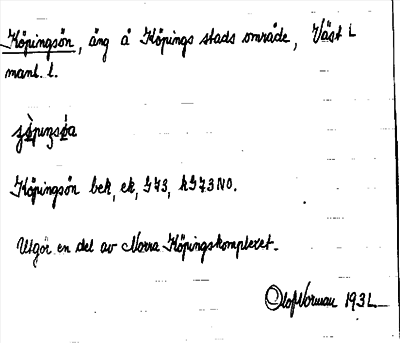 Köpingsön, äng å Köpings stads område, Väst L
manl. l.
Köpingsön bek, ek, G73, kG73NO.
Utgör en del av Norra Köpingskomplexet.
Olof Norman 1931